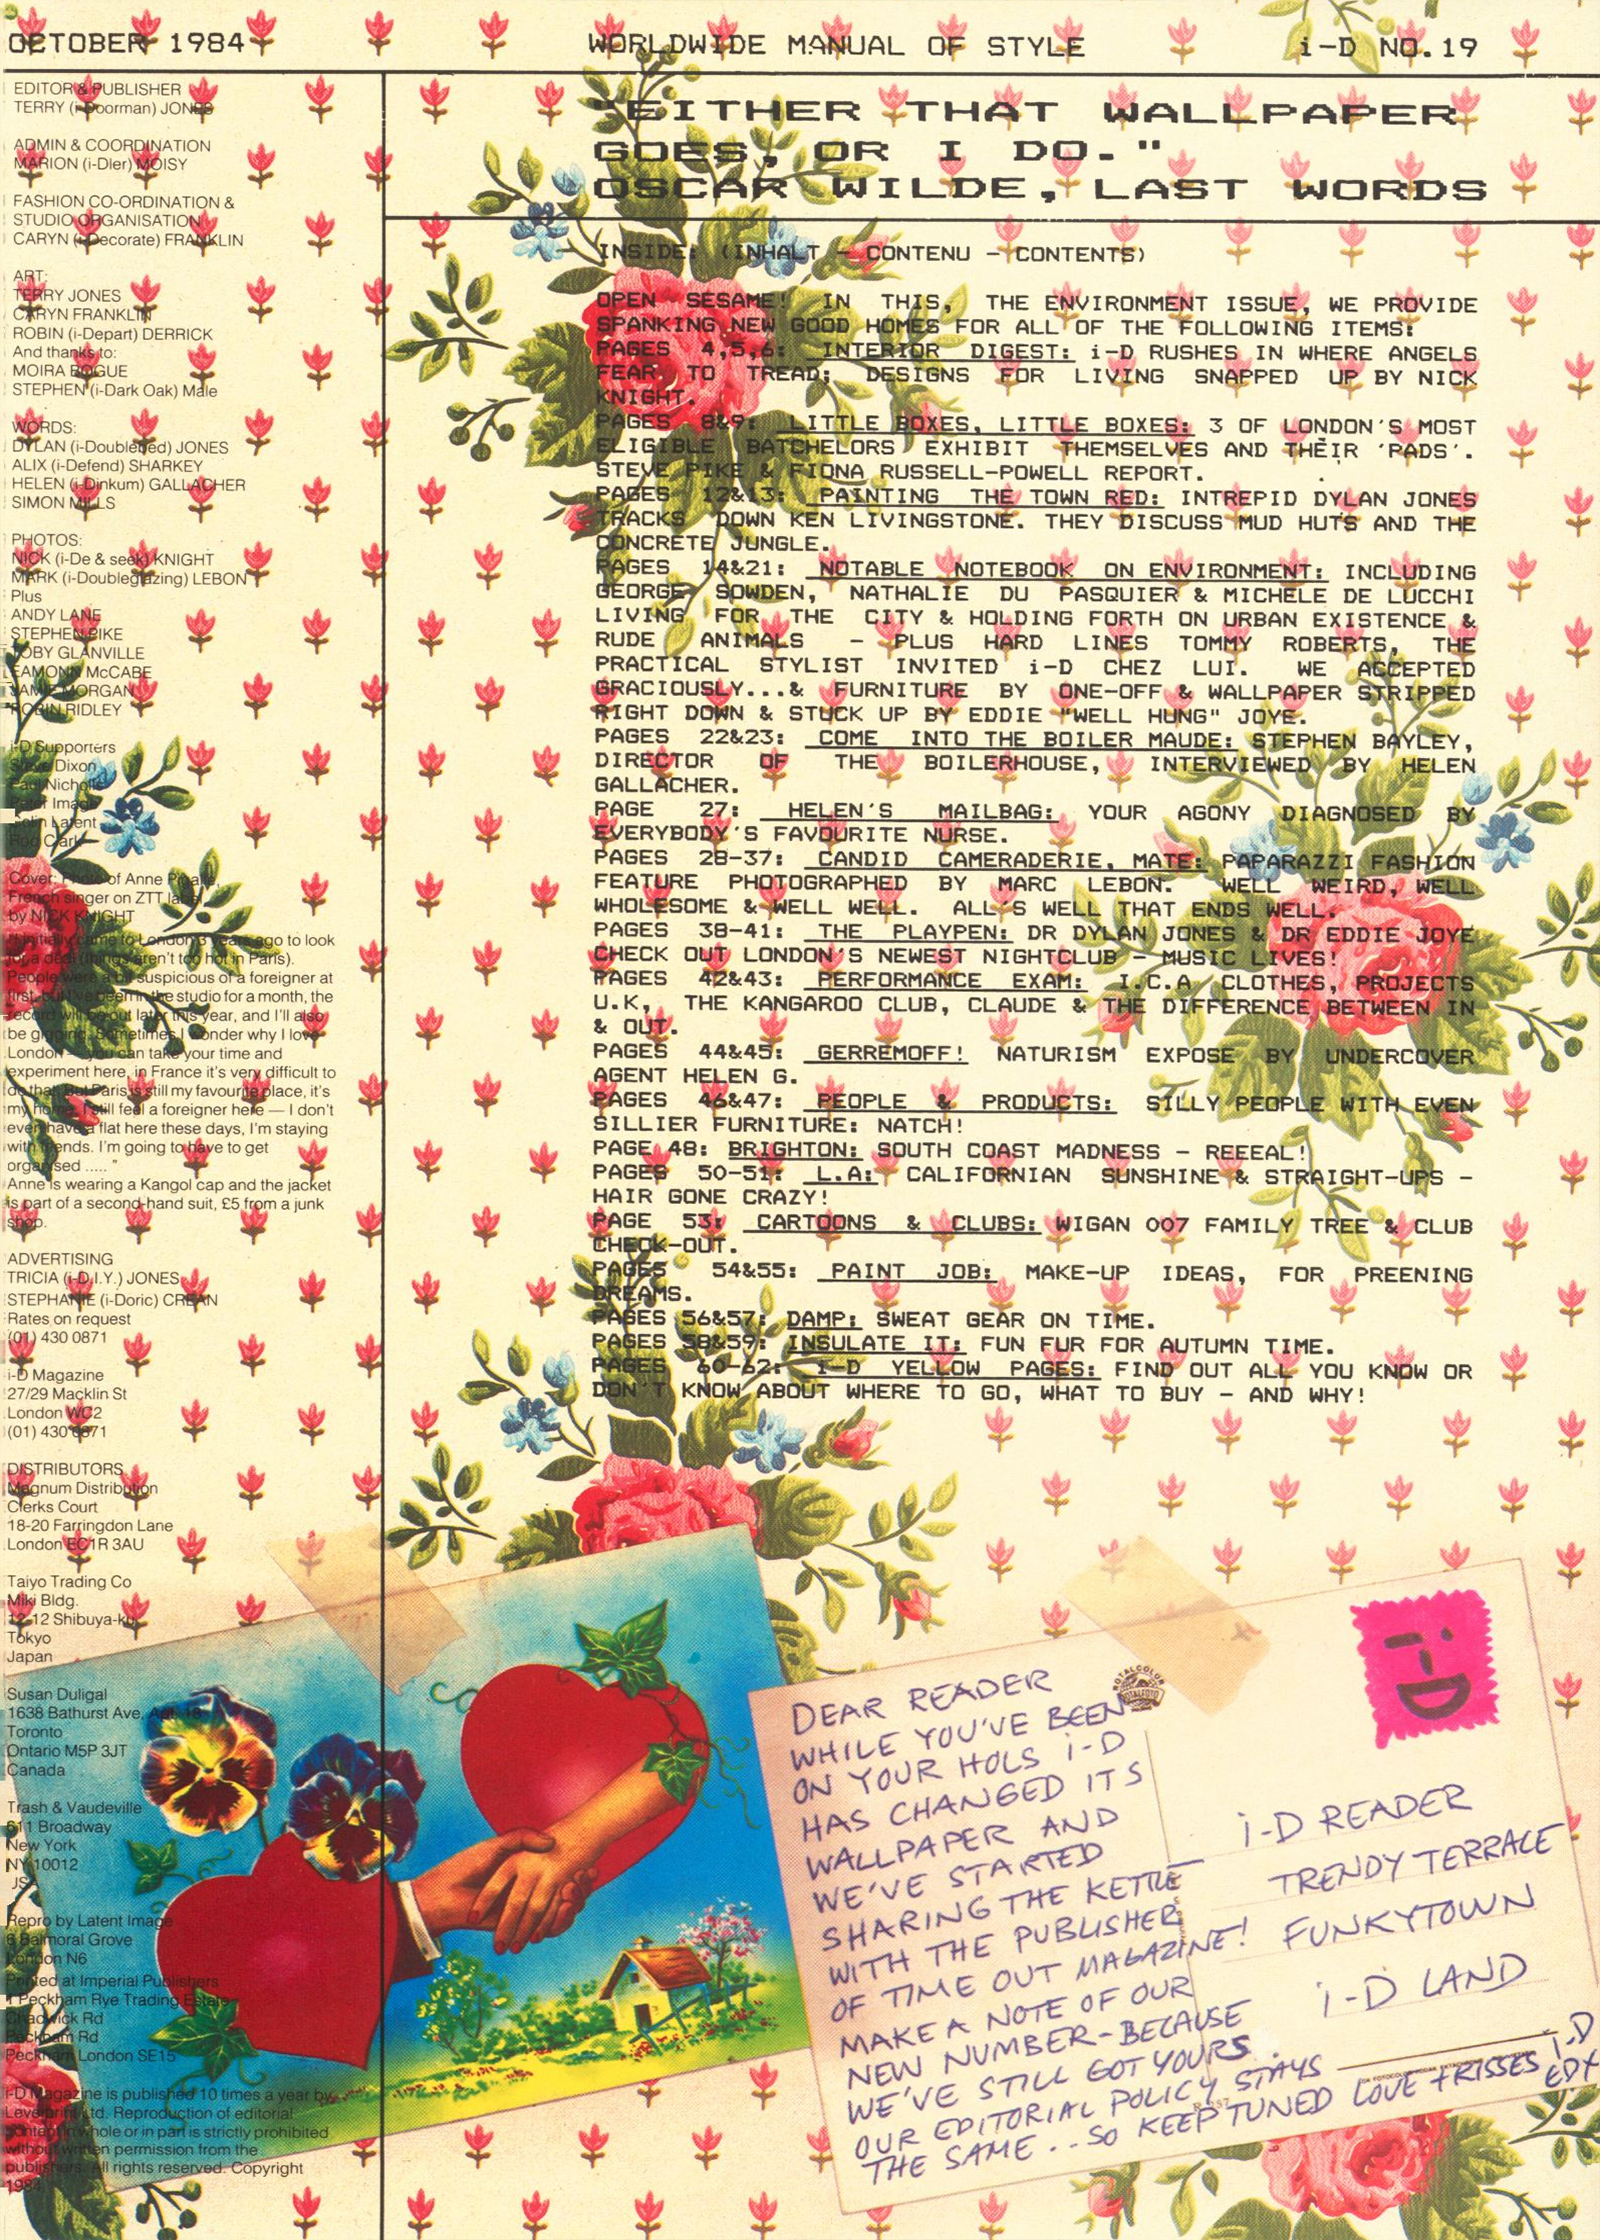 OCTOBER 1984
WORLDWIDE MANUAL OF STYLE
i-D NO.19
"EITHER THAT WALLPAPER
GOES, OR I DO."
OSCAR WILDE, LAST WORDS
EDITOR & PUBLISHER
TERRY (i-Doorman) JONES
ADMIN & COORDINATION
MARION (i-Dler) MOISY
FASHION CO-ORDINATION &
STUDIO ORGANISATION
CARYN (i-Decorate) FRANKLIN
ART:
TERRY JONES
CARYN FRANKLIN
ROBIN (i-Depart) DERRICK
And thanks to:
MOIRA BOGUE
STEPHEN (i-Dark Oak) Male
WORDS:
DYLAN (i-Doublebed) JONES
ALIX (i-Defend) SHARKEY
HELEN (i-Dinkum) GALLACHER
SIMON MILLS
PHOTOS:
NICK (i-De & seek) KNIGHT
MARK (i-Doubleglazing) LEBON
Plus
ANDY LANE
STEPHEN PIKE
TOBY GLANVILLE
EAMONN McCABE
JAMIE MORGAN
ROBIN RIDLEY
i-D Supporters
Steve Dixon
Paul Nicholls
Peter Image
Colin Latent
Rod Clark
Cover: Photo of Anne Pigalle,
French singer on ZTT label,
by NICK KNIGHT
"I initially came to London 3 years ago to look
for a deal (things aren't too hot in Paris).
People were a bit suspicious of a foreigner at
first, but I've been in the studio for a month, the
record will be out later this year, and I'll also
be gigging. Sometimes I wonder why I love
London — you can take your time and
experiment here, in France it's very difficult to
do that. But Paris is still my favourite place, it's
my home. I still feel a foreigner here — I don't
even have a flat here these days, I'm staying
with friends. I'm going to have to get
organised ..... "
Anne is wearing a Kangol cap and the jacket
is part of a second-hand suit, £5 from a junk
shop.
ADVERTISING
TRICIA (i-D.I.Y.) JONES
STEPHANIE (i-Doric) CREAN
Rates on request
(01) 430 0871
i-D Magazine
27/29 Macklin St
London WC2
(01) 430 0871
DISTRIBUTORS
Magnum Distribution
Clerks Court
18-20 Farringdon Lane
London EC1R 3AU
Taiyo Trading Co
Miki Bldg.
12-12 Shibuya-ku
Tokyo
Japan
Susan Duligal
1638 Bathurst Ave, Apt. 18
Toronto
Ontario M5P 3JT
Canada
Trash & Vaudeville
611 Broadway
New York
NY 10012
USA
Repro by Latent Image
6 Balmoral Grove
London N6
Printed at Imperial Publishers
1 Peckham Rye Trading Estate
Chadwick Rd
Peckham Rd
Peckham London SE15
i-D Magazine is published 10 times a year by
Levelprint Ltd. Reproduction of editorial
content in whole or in part is strictly prohibited
without written permission from the
publishers. All rights reserved. Copyright
1984
INSIDE: (INHALT - CONTENU - CONTENTS)
OPEN SESAME! IN THIS, THE ENVIRONMENT ISSUE, WE PROVIDE
SPANKING NEW GOOD HOMES FOR ALL OF THE FOLLOWING ITEMS:
PAGES 4,5,6: INTERIOR DIGEST: i-D RUSHES IN WHERE ANGELS
FEAR TO TREAD; DESIGNS FOR LIVING SNAPPED UP BY NICK
KNIGHT.
PAGES 8&9: LITTLE BOXES, LITTLE BOXES: 3 OF LONDON'S MOST
ELIGIBLE BATCHELORS EXHIBIT THEMSELVES AND THEIR 'PADS'.
STEVE PIKE & FIONA RUSSELL-POWELL REPORT.
PAGES 12&13: PAINTING THE TOWN RED: INTREPID DYLAN JONES
TRACKS DOWN KEN LIVINGSTONE. THEY DISCUSS MUD HUTS AND THE
CONCRETE JUNGLE.
PAGES 14&21: NOTABLE NOTEBOOK ON ENVIRONMENT: INCLUDING
GEORGE SOWDEN, NATHALIE DU PASQUIER & MICHELE DE LUCCHI
LIVING FOR THE CITY & HOLDING FORTH ON URBAN EXISTENCE &
RUDE ANIMALS - PLUS HARD LINES TOMMY ROBERTS, THE
PRACTICAL STYLIST INVITED i-D CHEZ LUI. WE ACCEPTED
GRACIOUSLY...& FURNITURE BY ONE-OFF & WALLPAPER STRIPPED
RIGHT DOWN & STUCK UP BY EDDIE "WELL HUNG" JOYE.
PAGES 22&23: COME INTO THE BOILER MAUDE: STEPHEN BAYLEY,
DIRECTOR OF THE BOILERHOUSE, INTERVIEWED BY HELEN
GALLACHER.
PAGE 27: HELEN'S MAILBAG: YOUR AGONY DIAGNOSED BY
EVERYBODY'S FAVOURITE NURSE.
PAGES 28-37: CANDID CAMERADERIE, MATE: PAPARAZZI FASHION
FEATURE PHOTOGRAPHED BY MARC LEBON. WELL WEIRD, WELL
WHOLESOME & WELL WELL. ALL'S WELL THAT ENDS WELL.
PAGES 38-41: THE PLAYPEN: DR DYLAN JONES & DR EDDIE JOYE
CHECK OUT LONDON'S NEWEST NIGHTCLUB - MUSIC LIVES!
PAGES 42&43: PERFORMANCE EXAM: I.C.A CLOTHES, PROJECTS
U.K, THE KANGAROO CLUB, CLAUDE & THE DIFFERENCE BETWEEN IN
& OUT.
PAGES 44&45: GERREMOFF! NATURISM EXPOSE BY UNDERCOVER
AGENT HELEN G.
PAGES 46&47: PEOPLE & PRODUCTS: SILLY PEOPLE WITH EVEN
SILLIER FURNITURE: NATCH!
PAGE 48: BRIGHTON: SOUTH COAST MADNESS - REEEAL!
PAGES 50-51: L.A: CALIFORNIAN SUNSHINE & STRAIGHT-UPS -
HAIR GONE CRAZY!
PAGE 53: CARTOONS & CLUBS: WIGAN 007 FAMILY TREE & CLUB
CHECK-OUT.
PAGES 54&55: PAINT JOB: MAKE-UP IDEAS, FOR PREENING
DREAMS.
PAGES 56&57: DAMP: SWEAT GEAR ON TIME.
PAGES 58&59: INSULATE IT: FUN FUR FOR AUTUMN TIME.
PAGES 60-62: i-D YELLOW PAGES: FIND OUT ALL YOU KNOW OR
DON'T KNOW ABOUT WHERE TO GO, WHAT TO BUY - AND WHY!
DEAR READER
WHILE YOU'VE BEEN
ON YOUR HOLS i-D
HAS CHANGED ITS
WALLPAPER AND
WE'VE STARTED
SHARING THE KETTLE
WITH THE PUBLISHER
OF TIME OUT MAGAZINE!
MAKE A NOTE OF OUR
NEW NUMBER-BECAUSE
WE'VE STILL GOT YOURS.
OUR EDITORIAL POLICY STAYS
THE SAME...SO KEEP TUNED LOVE + KISSES i-D
i-D READER
TRENDY TERRACE
FUNKYTOWN
i-D LAND